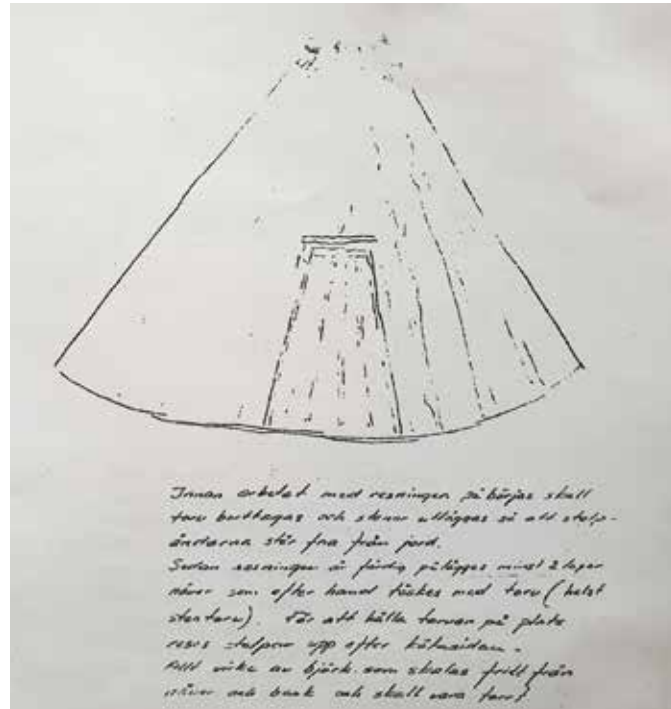 Innan arbetet med resningen påbörjas skall
torv borttagas och stenar utläggas så att stolp-
ändarna står fria från jord.
Sedan resningen är färdig pålägges minst 2 lager
näver som efter hand täckes med torv (helst
stentorv). För att hålla torven på plats
reses stolpar upp efter kåtasidan.
Allt virke av björk som skalas fritt från
näver och bark och skall vara torrt